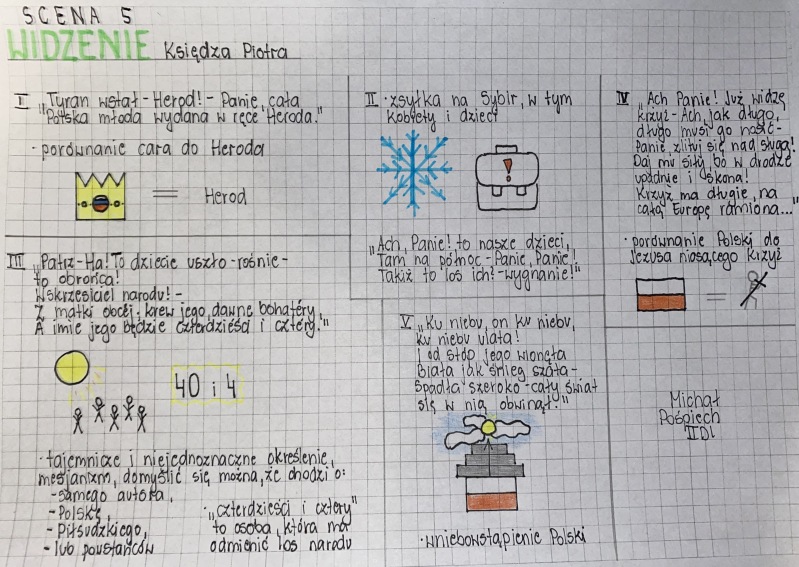 SCENA 5
WIDZENIE Księdza Piotra
I „Tyran wstał - Herod! - Panie, cała
Polska młoda wydana w ręce Heroda."
· porównanie cara do Heroda
= Herod
II · zsyłka na Sybir, w tym
kobiety i dzieci
!
„Ach, Panie! to nasze dzieci,
Tam na północ - Panie, Panie!
Takiż to los ich! - wygnanie!"
III „Patrz - Ha! To dziecię uszło - rośnie -
to obrońca!
Wskrzesiciel narodu! -
Z matki obcej; krew jego, dawne bohatery,
A imię jego będzie czterdzieści i cztery."
40 i 4
· tajemnicze i niejednoznaczne określenie,
mesjanizm, domyślić się można, że chodzi o:
- samego autora,
- Polskę,
- Piłsudzkiego,
- lub powstańców
· „czterdzieści i cztery"
to osoba, która ma
odmienić los narodu
IV „Ach Panie! Już widzę
krzyż - Ach, jak długo,
długo musi go nosić -
Panie, zlituj się nad sługą!
Daj mu siły, bo w drodze
upadnie i skona!
Krzyż ma długie, na
całą Europę ramiona..."
· porównanie Polski do
Jezusa niosącego krzyż
=
V „Ku niebu, on ku niebu,
ku niebu ulata!
I od stóp jego wionęła
Biała jak śnieg szata -
Spadła szeroko - cały świat
się w nią obwinął."
· wniebowstąpienie Polski
Michał
Pośpiech
II DL